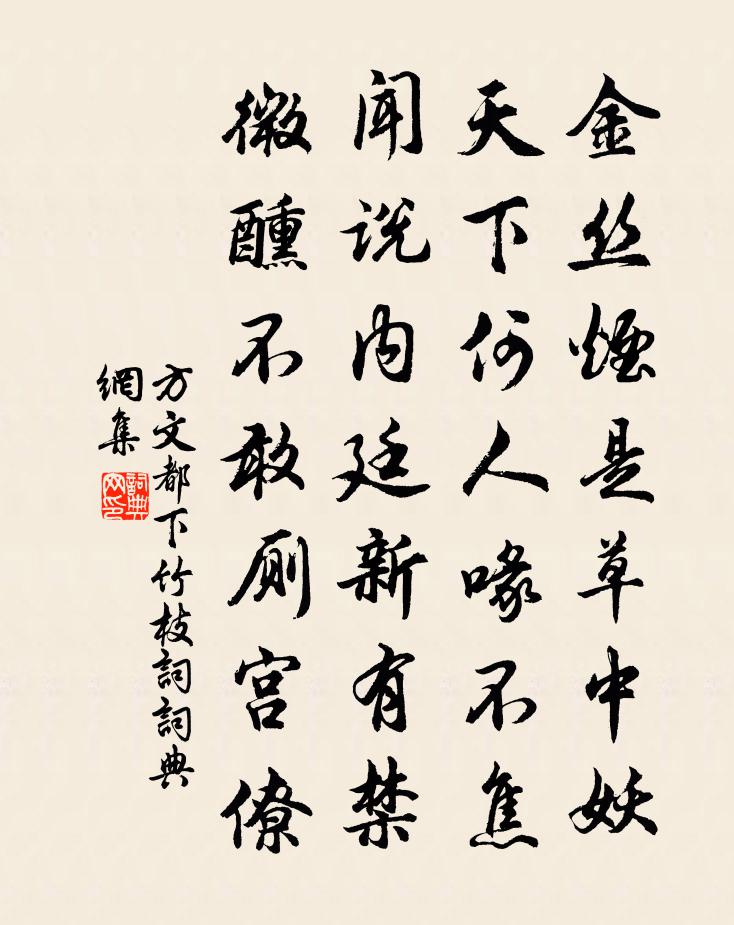 金丝烟是草中妖
天下何人喙不焦
闻说内廷新有禁
微醺不敢厕宫僚
方文都下竹枝詞詞典
網集
詞典
网印